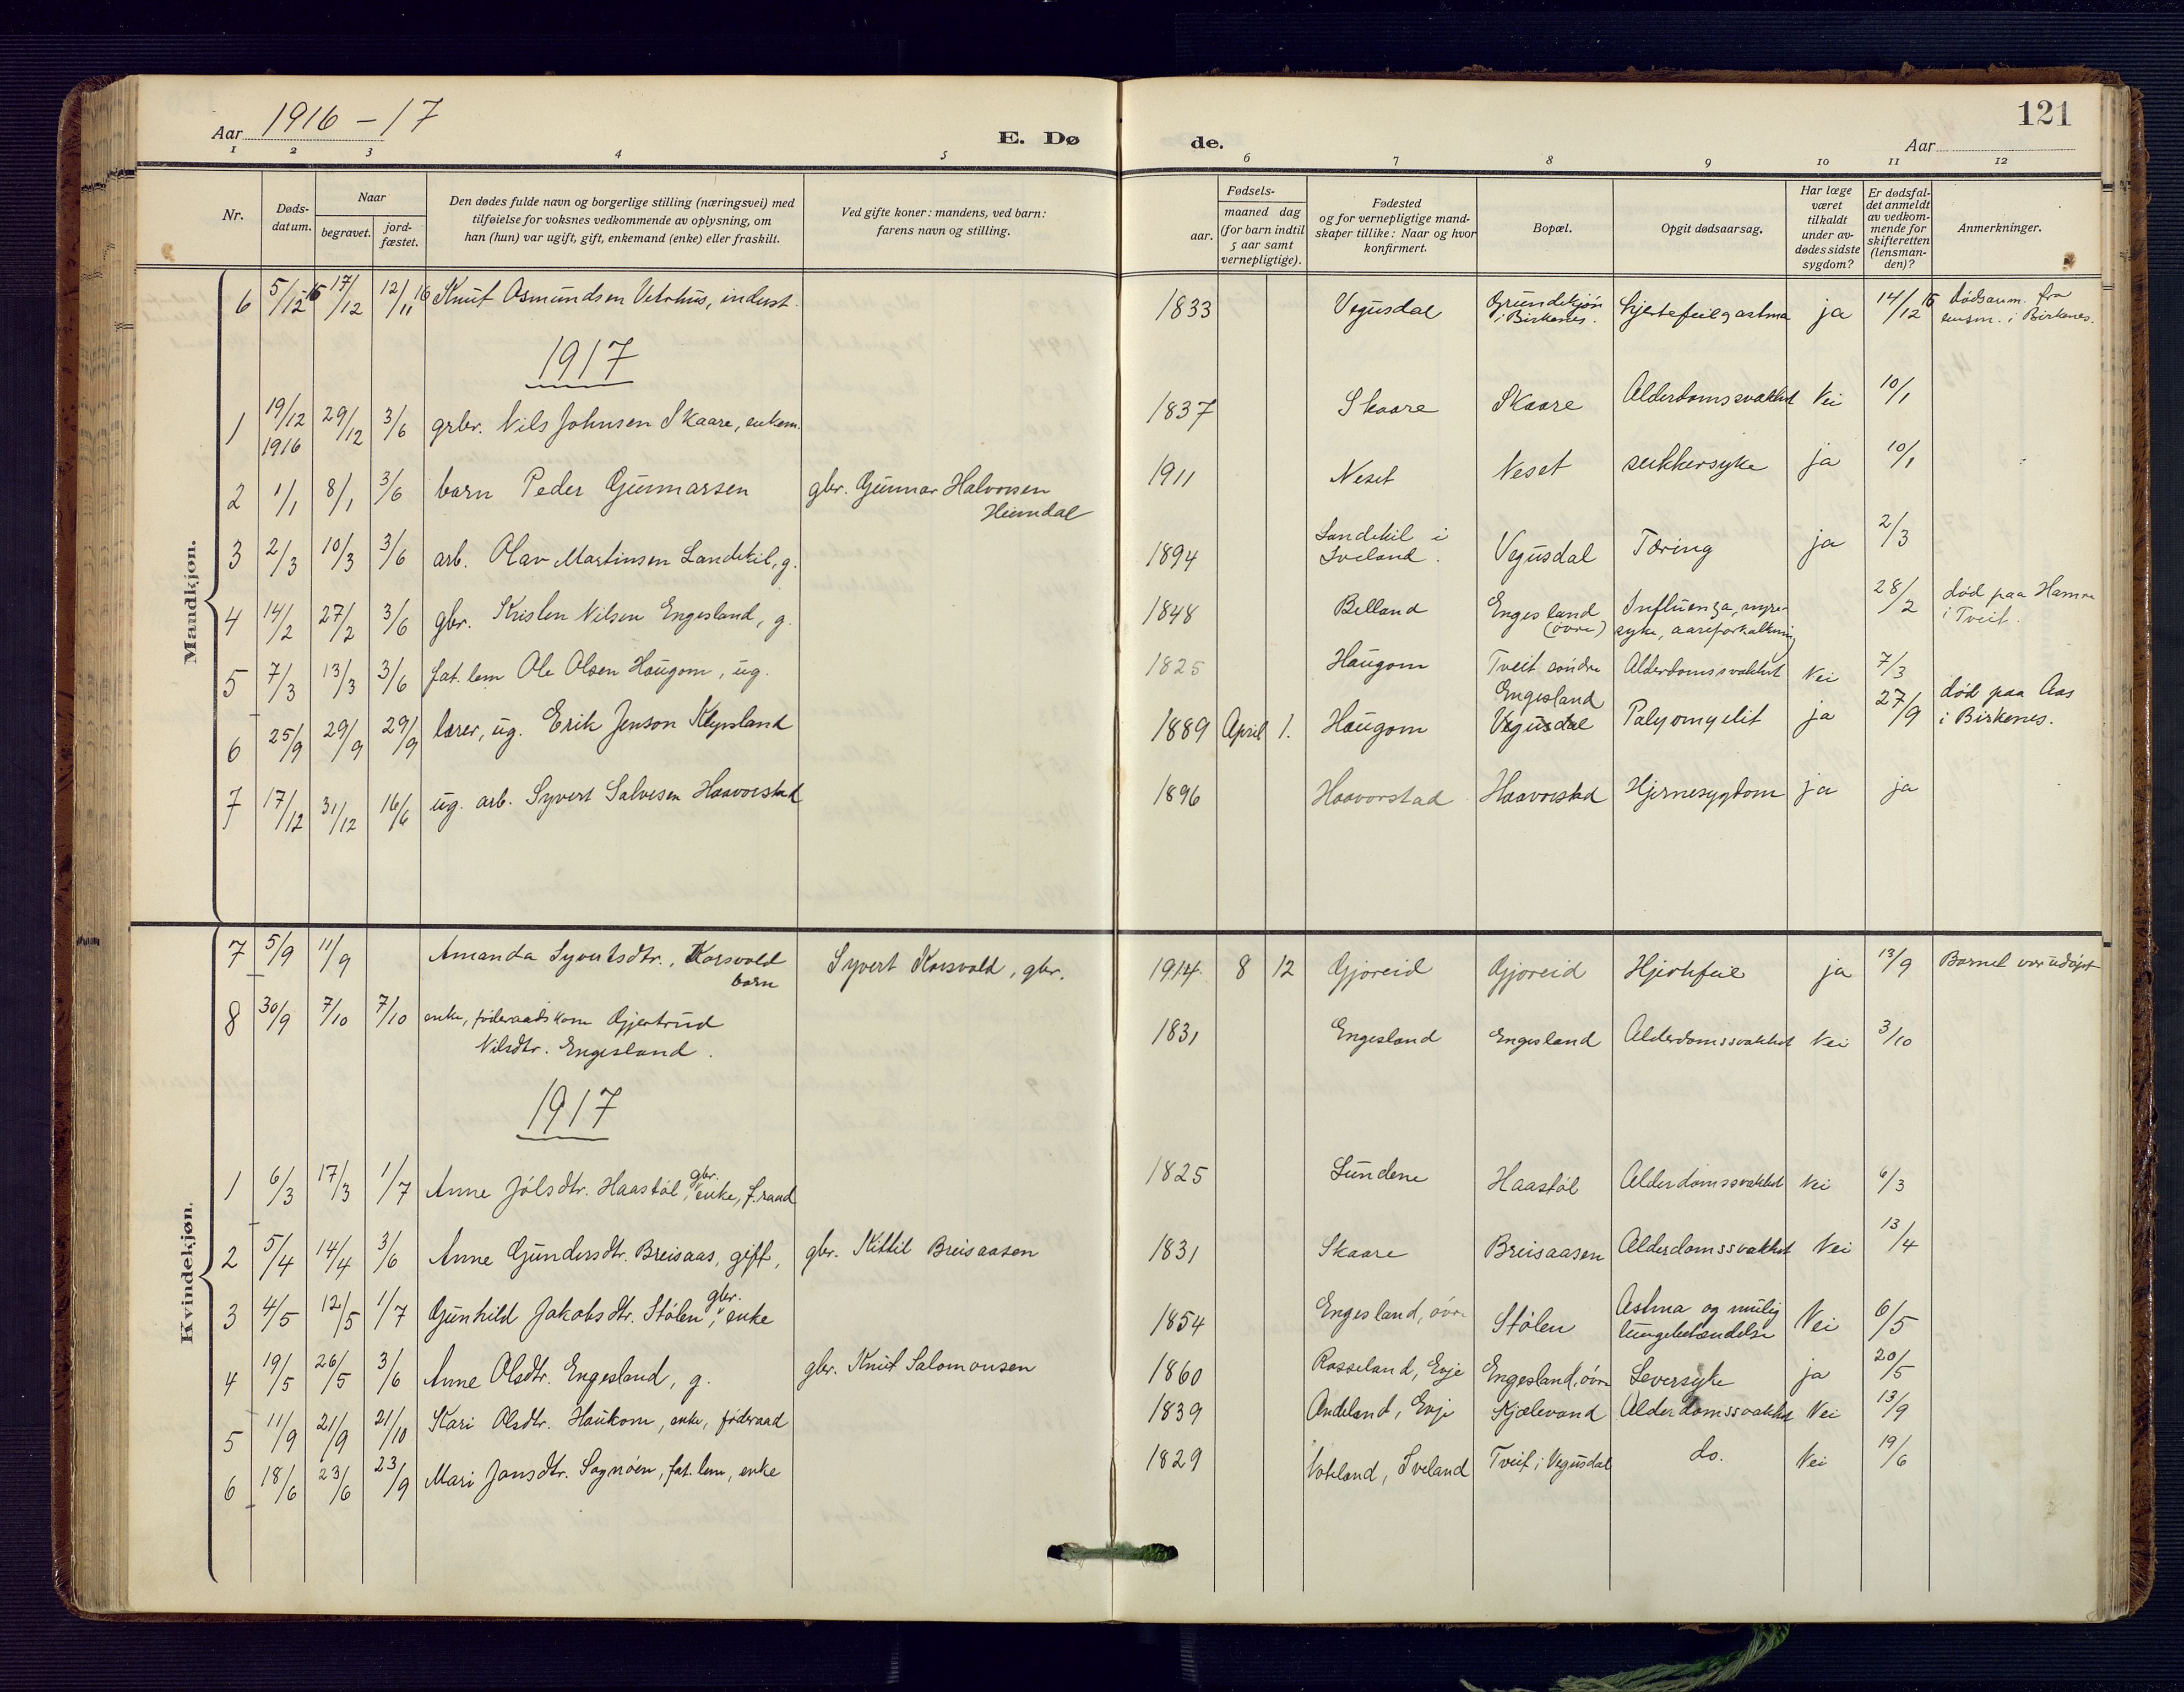 Aar 1916 - 17
E. Dø
de.
121
Aar
1 2 3 4 5 6 7 8 9 10 11 12
Nr.
Døds-datum.
Naar
begravet.
jord-fæstet.
Den dødes fulde navn og borgerlige stilling (næringsvei) med
tilføielse for voksnes vedkommende av oplysning, om
han (hun) var ugift, gift, enkemand (enke) eller fraskilt.
Ved gifte koner: mandens, ved barn:
farens navn og stilling.
Fødsels-
aar.
maaned dag
(for barn indtil
5 aar samt
vernepligtige).
Fødested
og for vernepligtige mand-
skaper tillike: Naar og hvor
konfirmert.
Bopæl.
Opgit dødsaarsag.
Har læge
været
tilkaldt
under av-
dødes sidste
sygdom?
Er dødsfal-
det anmeldt
av vedkom-
mende for
skifteretten
(lensman-
den)?
Anmerkninger.
Mandkjøn.
6 5/12 16 17/12 12/11 16 Knut Osmundsen Vetrhus, inderst. 1833 Vegusdal Grundekjøn i Birkenes. hjertefeil og astma ja 14/12 16 dødsanm. fra lensm. i Birkenes.
1917
1 19/12 1916 29/12 3/6 grbr. Nils Johnsen Skaare, enkem. 1837 Skaare Skaare Alderdomssvakhet Nei 10/1
2 1/1 8/1 3/6 barn Peder Gunnarsen gbr. Gunnar Halvorsen Heimdal 1911 Neset Neset sukkersyke ja 10/1
3 2/3 10/3 3/6 arb. Olav Martinsen Landekil, g. 1894 Landekil i Iveland. Vegusdal Tæring ja 2/3
4 14/2 27/2 3/6 gbr. Kristen Nilsen Engesland, g. 1848 Belland Engesland (øvre) Influenza, nyre-syke, aareforkalkning 28/2 død paa Hamre i Tveit.
5 7/3 13/3 3/6 fat. lem Ole Olsen Haugom, ug. 1825 Haugom Tveit søndre Alderdomssvakhet Nei 7/3
6 25/9 29/9 29/9 lærer, ug. Erik Jenson Klepsland 1889 April 1. Haugom Engesland Vegusdal Polyomyelit ja 27/9 død paa Aas i Birkenes.
7 17/12 31/12 16/6 ug. arb. Syvert Salvesen Haavorstad 1896 Haavorstad Haavorstad Hjernesygdom ja ja
Kvindekjøn.
7 5/9 11/9 Amanda Syvertsdtr., Korsvold barn Syvert Korsvold, gbr. 1914 8 12 Gjoreid Gjoreid Hjertefeil ja 13/9 Barnet var udøpt
8 30/9 7/10 7/10 enke, føderaadskone Gjertrud
Nilsdtr. Engesland. 1831 Engesland Engesland Alderdomssvakhet Nei 3/10
1917
1 6/3 17/3 1/7 Anne Jólsdtr. Haastøl, gbr. enke, f.raad 1825 Lundene Haastøl Alderdomssvakhet Nei 6/3
2 5/4 14/4 3/6 Anne Gundersdtr. Breisaas, gift, gbr. Kittil Breisaasen 1831 Skaare Breisaasen Alderdomssvakhet Nei 13/4
3 4/5 12/5 1/7 Gunhild Jakobsdtr. Stólen, gbr. enke 1854 Engesland, øvre Stólen Astma og mulig lungebetændelse Nei 6/5
4 19/5 26/5 3/6 Anne Olsdtr. Engesland, g. gbr. Knut Salomonsen 1860 Rosseland, Evje Engesland, øvre Leversyke ja 20/5
5 11/9 21/9 21/10 Kari Olsdtr. Haukom, enke, føderaad 1839 Andeland, Evje Kjælevand Alderdomssvakhet Nei 13/9
6 18/6 23/6 23/9 Mari Jonsdtr. Sognóen, fat. lem, enke 1829 Vateland, Iveland Tveit i Vegusdal do. Nei 19/6